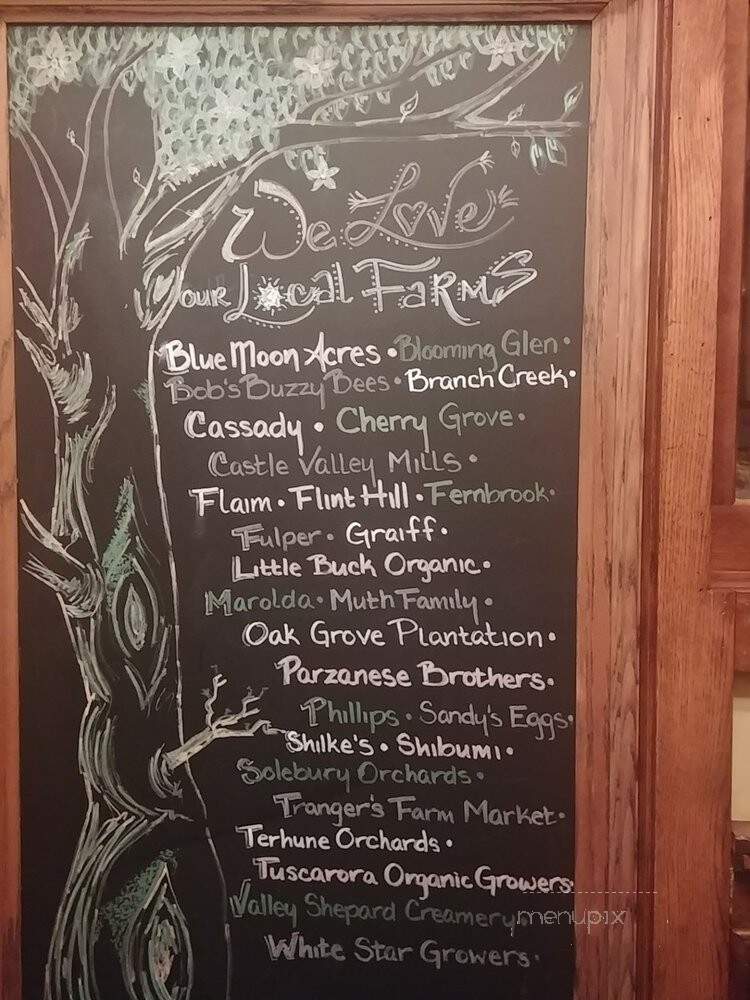 We Love
our Local Farms
Blue Moon Acres • Blooming Glen •
Bob's Buzzy Bees • Branch Creek •
Cassady • Cherry Grove •
Castle Valley Mills •
Flaim • Flint Hill • Fernbrook •
Fulper • Graiff •
Little Buck Organic •
Marolda • Muth Family •
Oak Grove Plantation •
Parzanese Brothers •
Phillips • Sandy's Eggs •
Shilke's • Shibumi •
Solebury Orchards •
Tranger's Farm Market •
Terhune Orchards •
Tuscarora Organic Growers •
Valley Shepard Creamery •
White Star Growers •
menupix